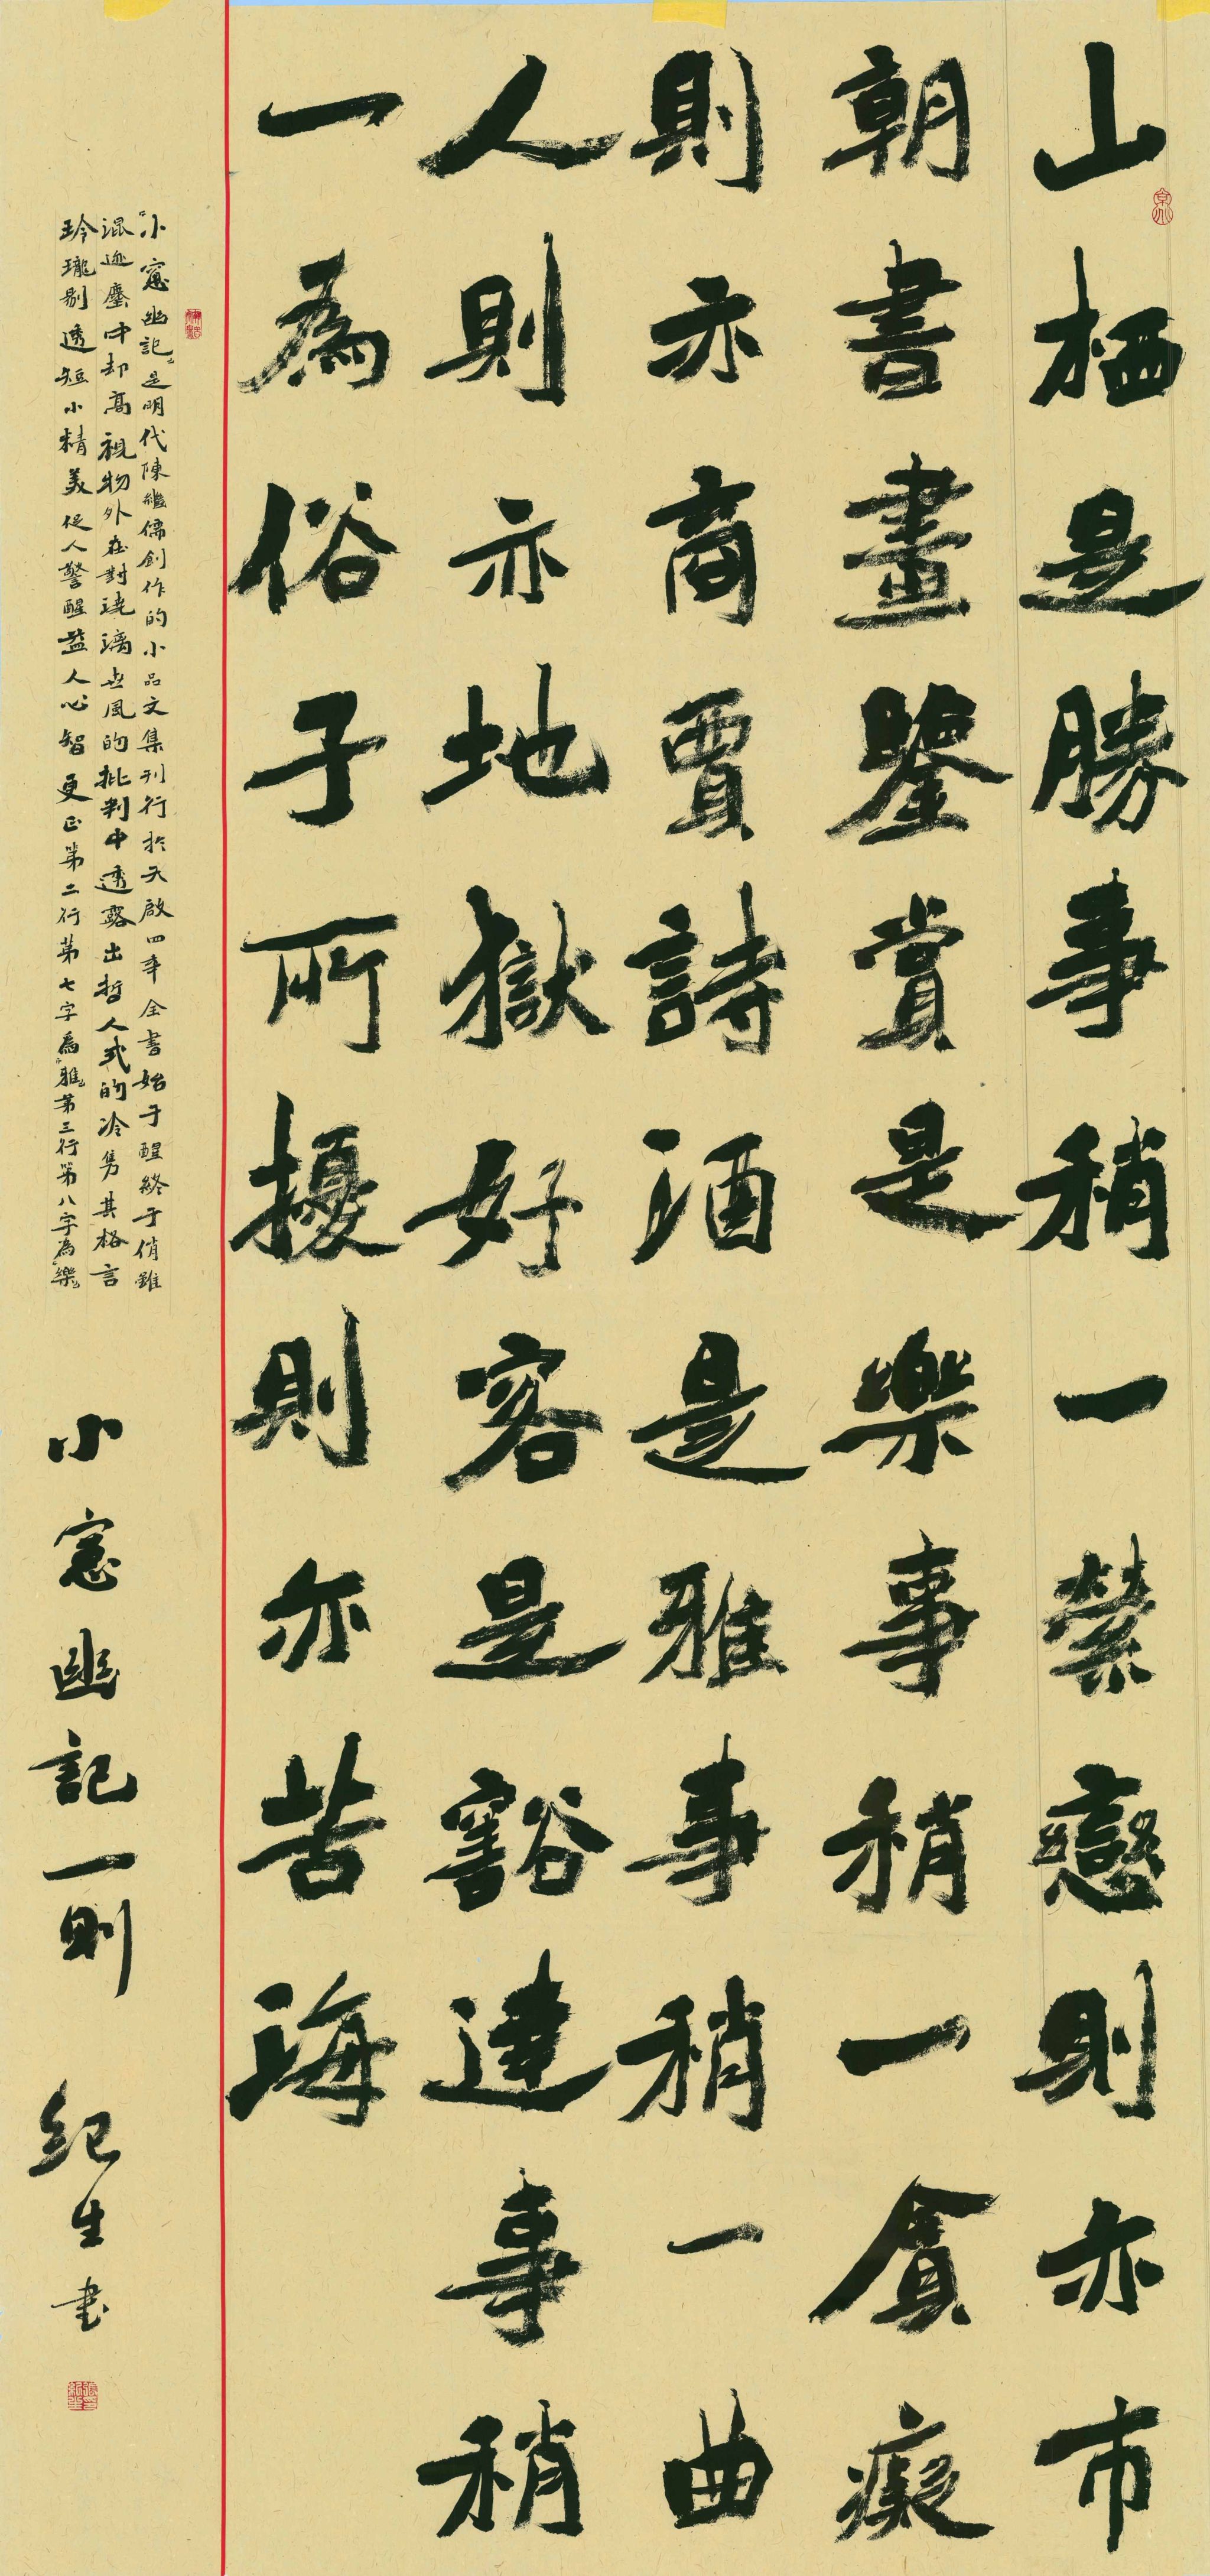 山栖是勝事稍一縈戀則亦市
朝書畫鑒賞是樂事稍一貪癡
則亦商賈詩酒是雅事稍一曲
人則亦地獄好客是豁達事稍
一為俗子所擾則亦苦海
“小窻幽記”是明代陳繼儒創作的小品文集刊行於天啟四年全書始于醒終于俏雖
混迹塵中却高視物外在對澆漓世風的批判中透露出哲人式的冷雋其格言
玲瓏剔透短小精美促人警醒益人心智更正第二行第七字為“雅”第三行第八字為“樂”
小窻幽記一則
紀生书